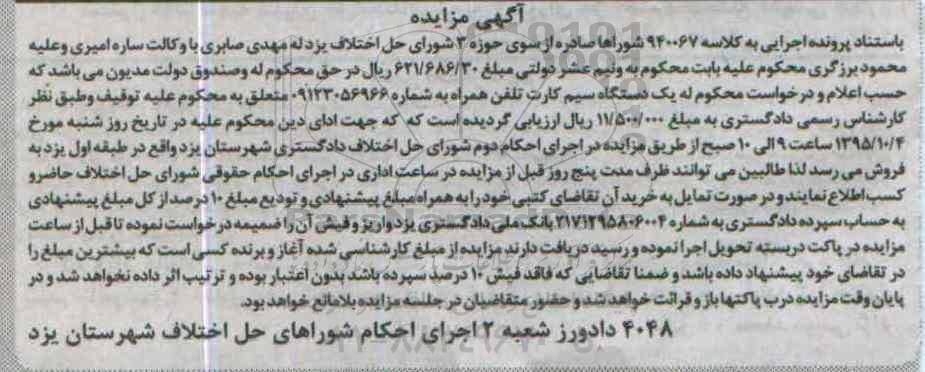 آگهی مزایده
باستناد پرونده اجرایی به کلاسه ۹۴۰۰۶۷ شوراها صادره از سوی حوزه ۳ شورای حل اختلاف یزد له مهدی صابری با وکالت ساره امیری وعلیه
محمود برزگری محکوم علیه بابت محکوم به ونیم عشر دولتی مبلغ ۶۲۱/۶۸۶/۳۰ ریال در حق محکوم له وصندوق دولت مدیون می باشد که
حسب اعلام و درخواست محکوم له یک دستگاه سیم کارت تلفن همراه به شماره ۰۹۱۲۳۰۵۶۹۶۶ متعلق به محکوم علیه توقیف وطبق نظر
کارشناس رسمی دادگستری به مبلغ ۱۱/۵۰۰/۰۰۰ ریال ارزیابی گردیده است که که جهت ادای دین محکوم علیه در تاریخ روز شنبه مورخ
۱۳۹۵/۱۰/۴ ساعت ۹ الی ۱۰ صبح از طریق مزایده در اجرای احکام دوم شورای حل اختلاف دادگستری شهرستان یزد واقع در طبقه اول یزد به
فروش می رسد لذا طالبین می توانند ظرف مدت پنج روز قبل از مزایده در ساعت اداری در اجرای احکام حقوقی شورای حل اختلاف حاضر و
کسب اطلاع نمایند و در صورت تمایل به خرید آن تقاضای کتبی خود را به همراه مبلغ پیشنهادی و تودیع مبلغ ۱۰ درصد از کل مبلغ پیشنهادی
به حساب سپرده دادگستری به شماره ۲۱۷۱۲۹۵۸۰۶۰۰۴ بانک ملی دادگستری یزد واریز و فیش آن را ضمیمه درخواست نموده تا قبل از ساعت
مزایده در پاکت دربسته تحویل اجرا نموده و رسید دریافت دارند مزایده از مبلغ کارشناسی شده آغاز و برنده کسی است که بیشترین مبلغ را
در تقاضای خود پیشنهاد داده باشد و ضمنا تقاضایی که فاقد فیش ۱۰ درصد سپرده باشد بدون اعتبار بوده و ترتیب اثر داده نخواهد شد و در
پایان وقت مزایده درب پاکتها باز و قرائت خواهد شد و حضور متقاضیان در جلسه مزایده بلامانع خواهد بود.
۴۰۴۸ دادورز شعبه ۲ اجرای احکام شوراهای حل اختلاف شهرستان یزد